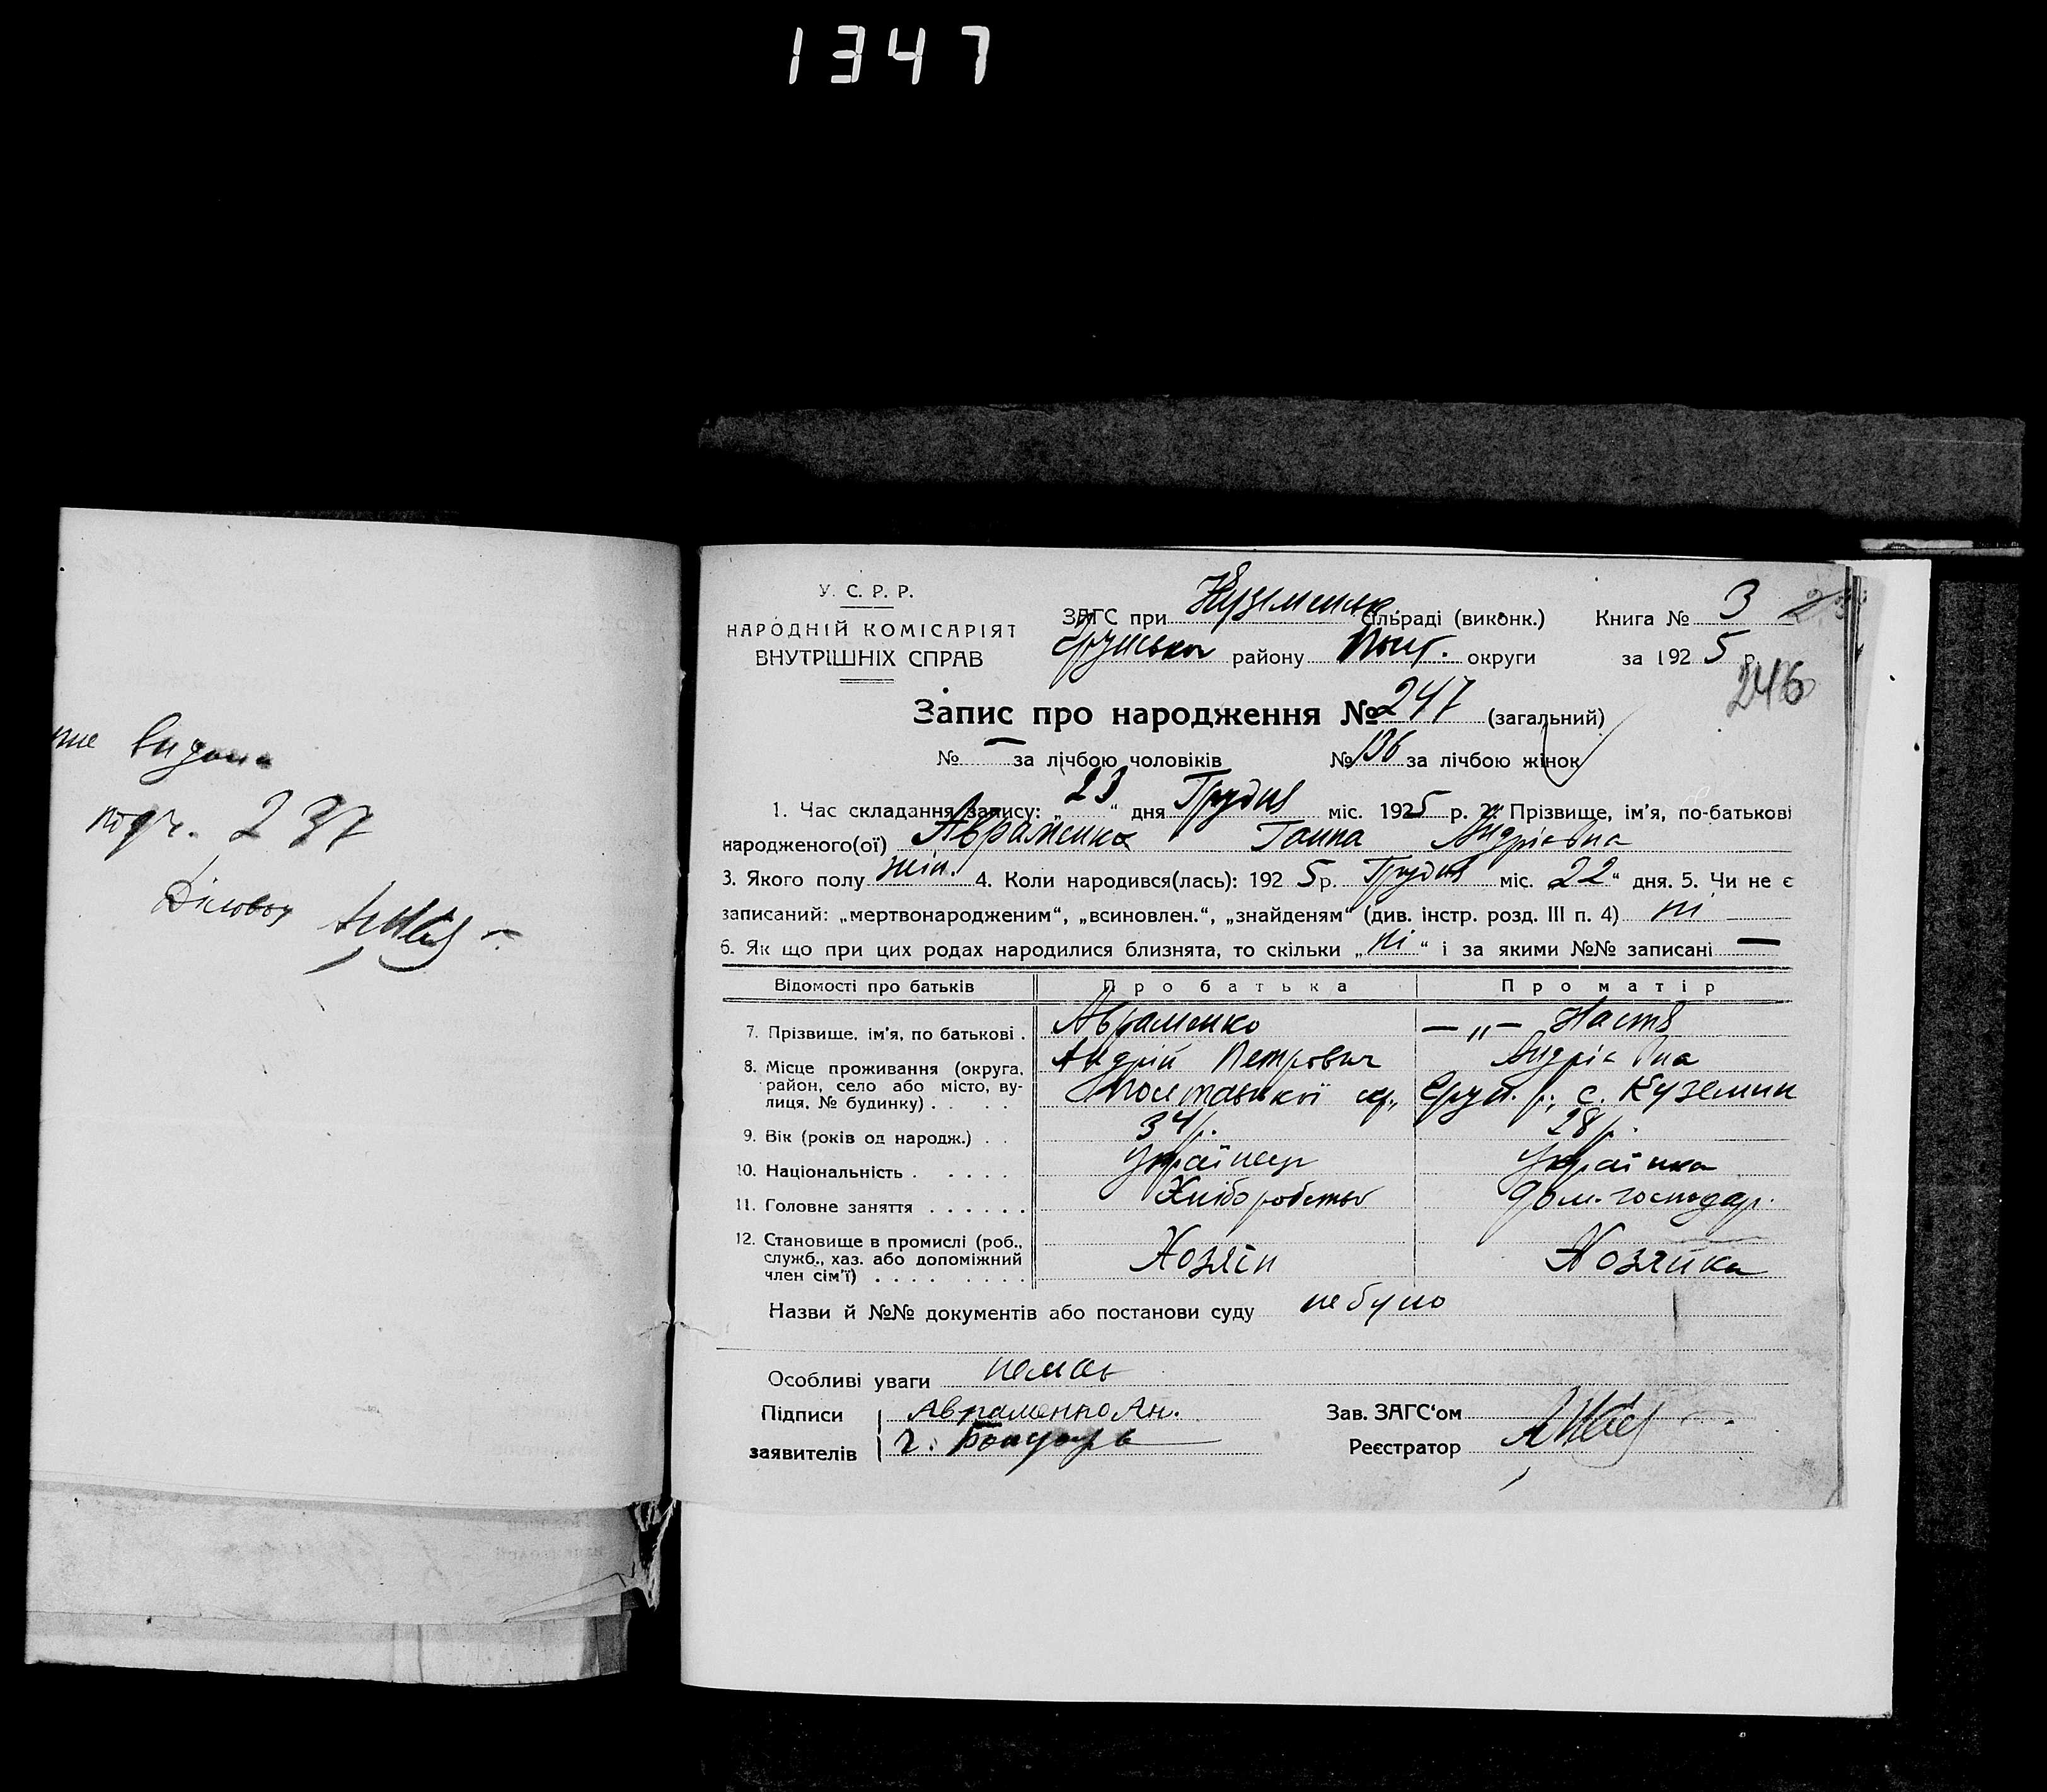 1347
видана
237
У. С. Р. Р.
НАРОДНІЙ КОМІСАРІЯТ
ВНУТРІШНІХ СПРАВ
ЗАГС при Куземськ. сільраді (виконк.) Книга № 3
району Полт. округи за 1925 р.
246
Запис про народження № 247 (загальний)
№ — за лічбою чоловіків № 136 за лічбою жінок
1. Час складання запису: „23“ дня Грудня міс. 1925 р. 2. Прізвище, ім'я, по-батькові
народженого(ої) Авраменко Ганна Андріївна
3. Якого полу жін. 4. Коли народився(лась): 1925 р. Грудня міс. 22“ дня. 5. Чи не є
записаний: „мертвонародженим“, „всиновлен.“, „знайденям“ (див. інстр. розд. III п. 4) ні
6. Як що при цих родах народилися близнята, то скільки „ні“ і за якими №№ записані —
Відомості про батьків Про батька Про матір
7. Прізвище, ім'я, по батькові . Авраменко —„— Настя
Андрій Петрович Андріївна
8. Місце проживання (округа,
район, село або місто, ву-
лиця, № будинку) . . . . Полтавської окр., Грун. р., с. Куземин
9. Вік (років од народж.) . . 34 р. 28 р.
10. Національність . . . . . Українець Українка
11. Головне заняття . . . . . . Хліборобство Дом. господар.
12. Становище в промислі (роб.,
служб., хаз. або допоміжний
член сім'ї) . . . . . . . . . Хозяїн Хозяйка
Назви й №№ документів або постанови суду не було
Особливі уваги немає
Підписи Авраменко Ан. Зав. ЗАГС'ом
заявителів Г. Бондарь Реєстратор